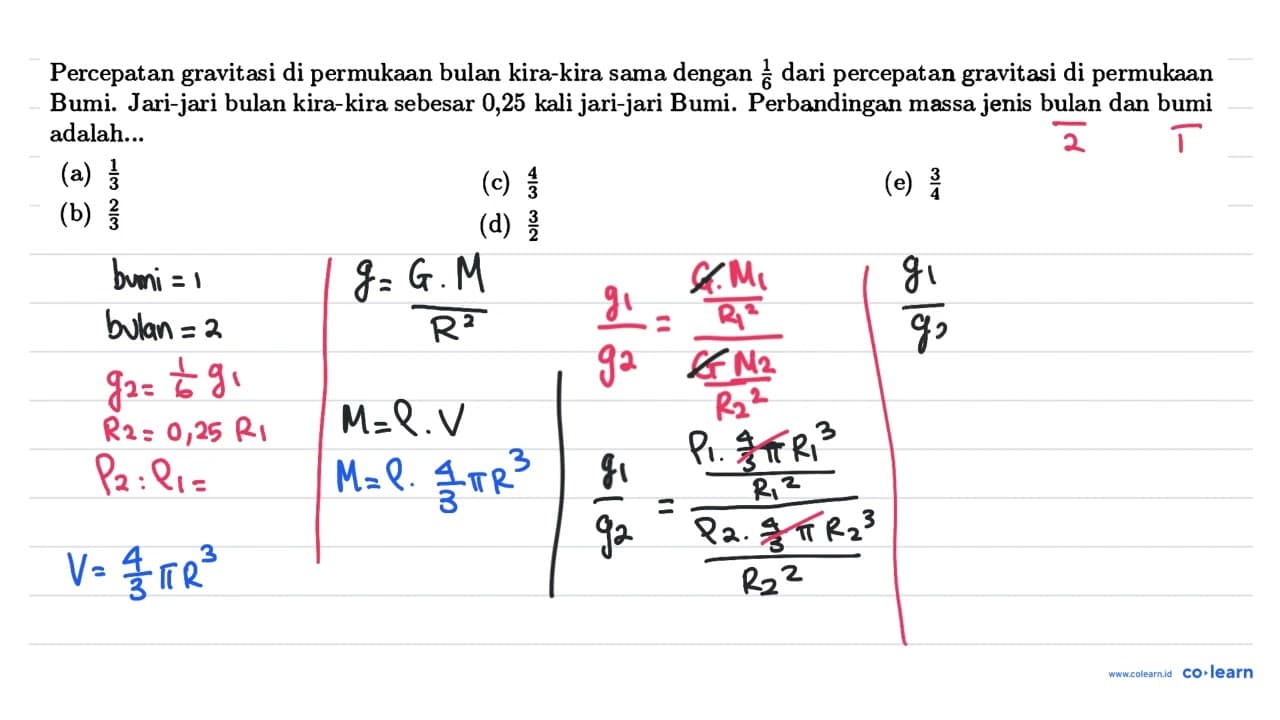 Percepatan gravitasi di permukaan bulan kira-kira sama dengan 1/6 dari percepatan gravitasi di permukaan
Bumi. Jari-jari bulan kira-kira sebesar 0,25 kali jari-jari Bumi. Perbandingan massa jenis bulan dan bumi
adalah...
2 1
(a) 1/3
(b) 2/3
(c) 4/3
(d) 3/2
(e) 3/4
bumi = 1
bulan = 2
g2 = 1/6 g1
R2 = 0,25 R1
ρ2 : ρ1 =
V = 4/3 π R³
g = G . M / R²
M = ρ . V
M = ρ . 4/3 π R³
g1/g2 = (G . M1 / R1²) / (G M2 / R2²)
g1/g2 = (ρ1 . 4/3 π R1³ / R1²) / (ρ2 . 4/3 π R2³ / R2²)
g1/g2
www.colearn.id co·learn